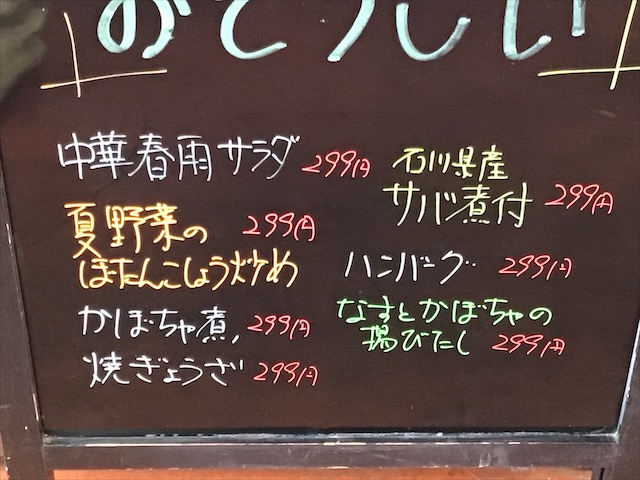 おそうしい
中華春雨サラダ 299円
夏野菜の 299円
ぼたんこしょう炒め
かぼちゃ煮, 299円
焼ぎょうざ 299円
石川県産
サバ煮付 299円
ハンバーグ 299円
なすとかぼちゃの
揚びたし 299円